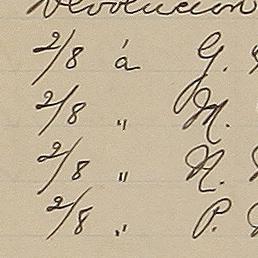 Devolucion
2/8 á G.
2/8 " M.
2/8 " N.
2/8 " P.